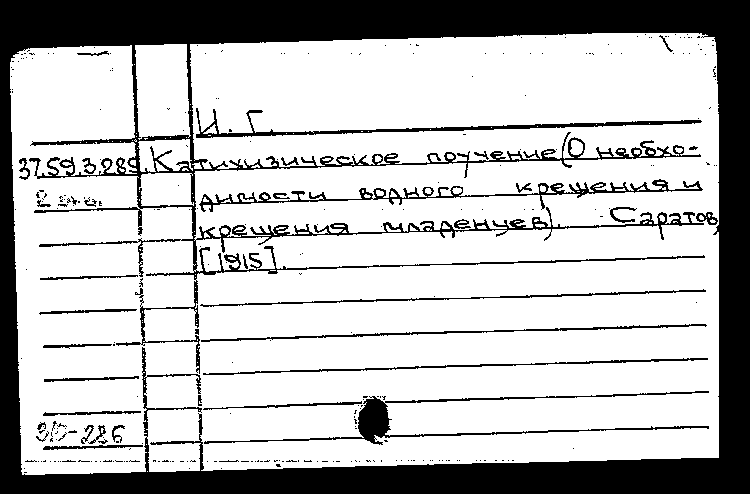 И. Г.
37.59.3.289. Катихизическое поучение (О необхо-
2 экз. димости водного крещения и
крещения младенцев). Саратов,
[1915].
310-286